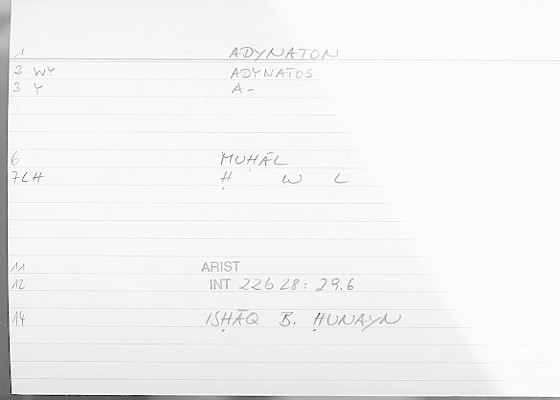 1 ADYNATON
2 WY ADYNATOS
3 Y A-
6 MUḤĀL
7LH Ḥ W L
11 ARIST
12 INT 22b 28: 29.6
14 ISḤĀQ B. ḤUNAYN